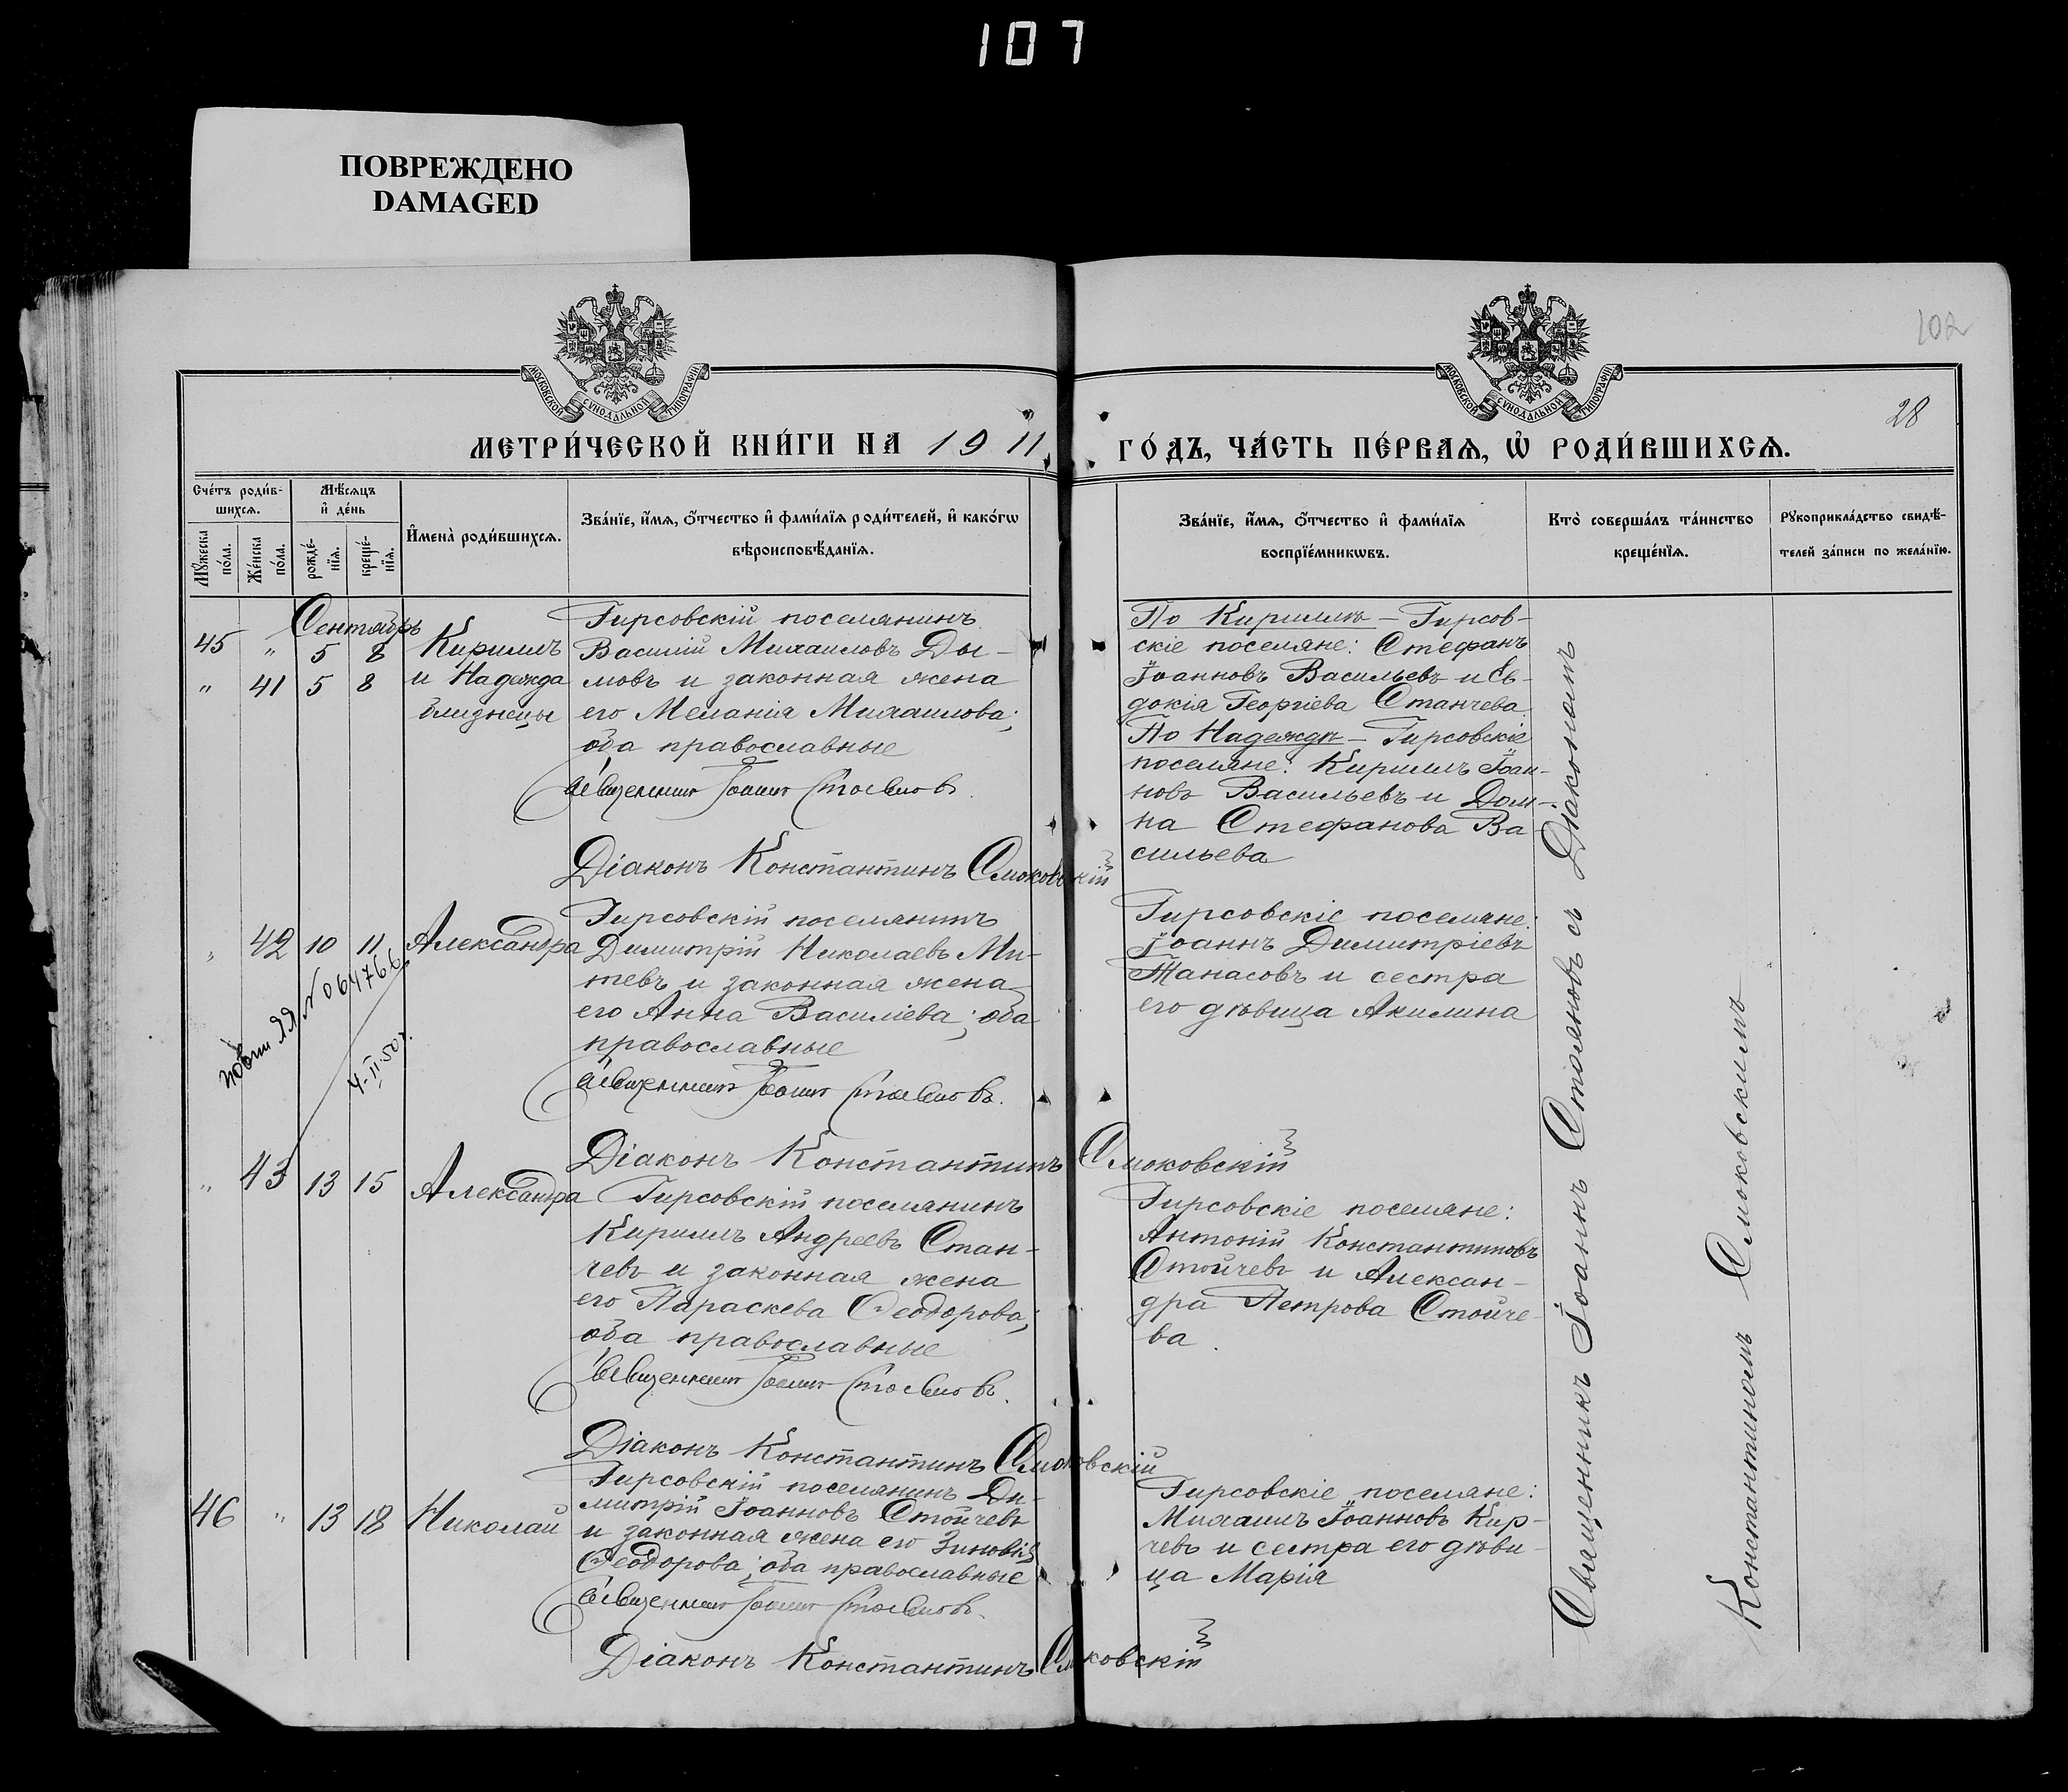 107
ПОВРЕЖДЕНО
DAMAGED
102
28
МОСКОВСКОЙ СѴНОДАЛЬНОЙ ТИПОГРАФІИ
МОСКОВСКОЙ СѴНОДАЛЬНОЙ ТИПОГРАФІИ
МЕТРИ́ЧЕСКОЙ КНИ́ГИ НА 1911
ГО́ДЪ, ЧА́СТЬ ПЕ́РВАѦ, Ѽ РОДИ́ВШИХСѦ.
Сче́тъ роди́в-
шихсѧ.
Мꙋ́жеска по́ла.
Же́нска по́ла.
Мѣ́сѧцъ
и҆ де́нь
рожде́-
нїѧ.
креще́-
нїѧ.
И҆мена̀ роди́вшихсѧ.
Зва́нїе, и҆́мѧ, ѻ҆́тчество и҆ фами́лїѧ роди́телей, и҆ како́гѡ
вѣроисповѣ́данїѧ.
Зва́нїе, и҆́мѧ, ѻ҆́тчество и҆ фами́лїѧ
воспрїе́мникѡвъ.
Кто̀ соверша́лъ та́инство
креще́нїѧ.
Рꙋкоприкла́дство свидѣ́-
телей за́писи по жела́нїю.
Сентябрь
45 " 5 8
" 41 5 8
Кириллъ
и Надежда
близнецы
Гирсовскій поселянинъ
Василій Михаиловъ Ды-
мовъ и законная жена
его Меланія Михаилова;
оба православные
Священникъ Іоаннъ Стояновъ.
Діаконъ Константинъ Смоковскій
По Кириллѣ – Гирсов-
скіе поселяне: Стефанъ
Іоанновъ Васильевъ и Ев-
докія Георгіева Станчева.
По Надеждѣ – Гирсовскіе
поселяне: Кириллъ Іоан-
новъ Васильевъ и Дом-
на Стефанова Ва-
сильева
" 42 10 11 Александра
Гирсовскій поселянинъ
Димитрій Николаевъ Ми-
тевъ и законная жена
его Анна Василіева; оба
православные
Священникъ Іоаннъ Стояновъ.
Діаконъ Константинъ Смоковскій
Гирсовскіе поселяне:
Іоаннъ Димитріевъ
Танасовъ и сестра
его дѣвица Акилина
ЯЯ № 064766
4-II-50 г.
" 43 13 15 Александра
Гирсовскій поселянинъ
Кириллъ Андреевъ Стан-
чевъ и законная жена
его Параскева Ѳеодорова;
оба православные
Священникъ Іоаннъ Стояновъ.
Діаконъ Константинъ Смоковскій
Гирсовскіе поселяне:
Антоній Константиновъ
Стойчевъ и Алексан-
дра Петрова Стойче-
ва.
46 " 13 18 Николай
Гирсовскій поселянинъ Ди-
митрій Іоанновъ Стойчевъ
и законная жена его Зиновія
Ѳеодорова; оба православные
Священникъ Іоаннъ Стояновъ.
Діаконъ Константинъ Смоковскій
Гирсовскіе поселяне:
Михаилъ Іоанновъ Кир-
чевъ и сестра его дѣви-
ца Марія
Священникъ Іоаннъ Стояновъ съ Діакономъ
Константиномъ Смоковскимъ